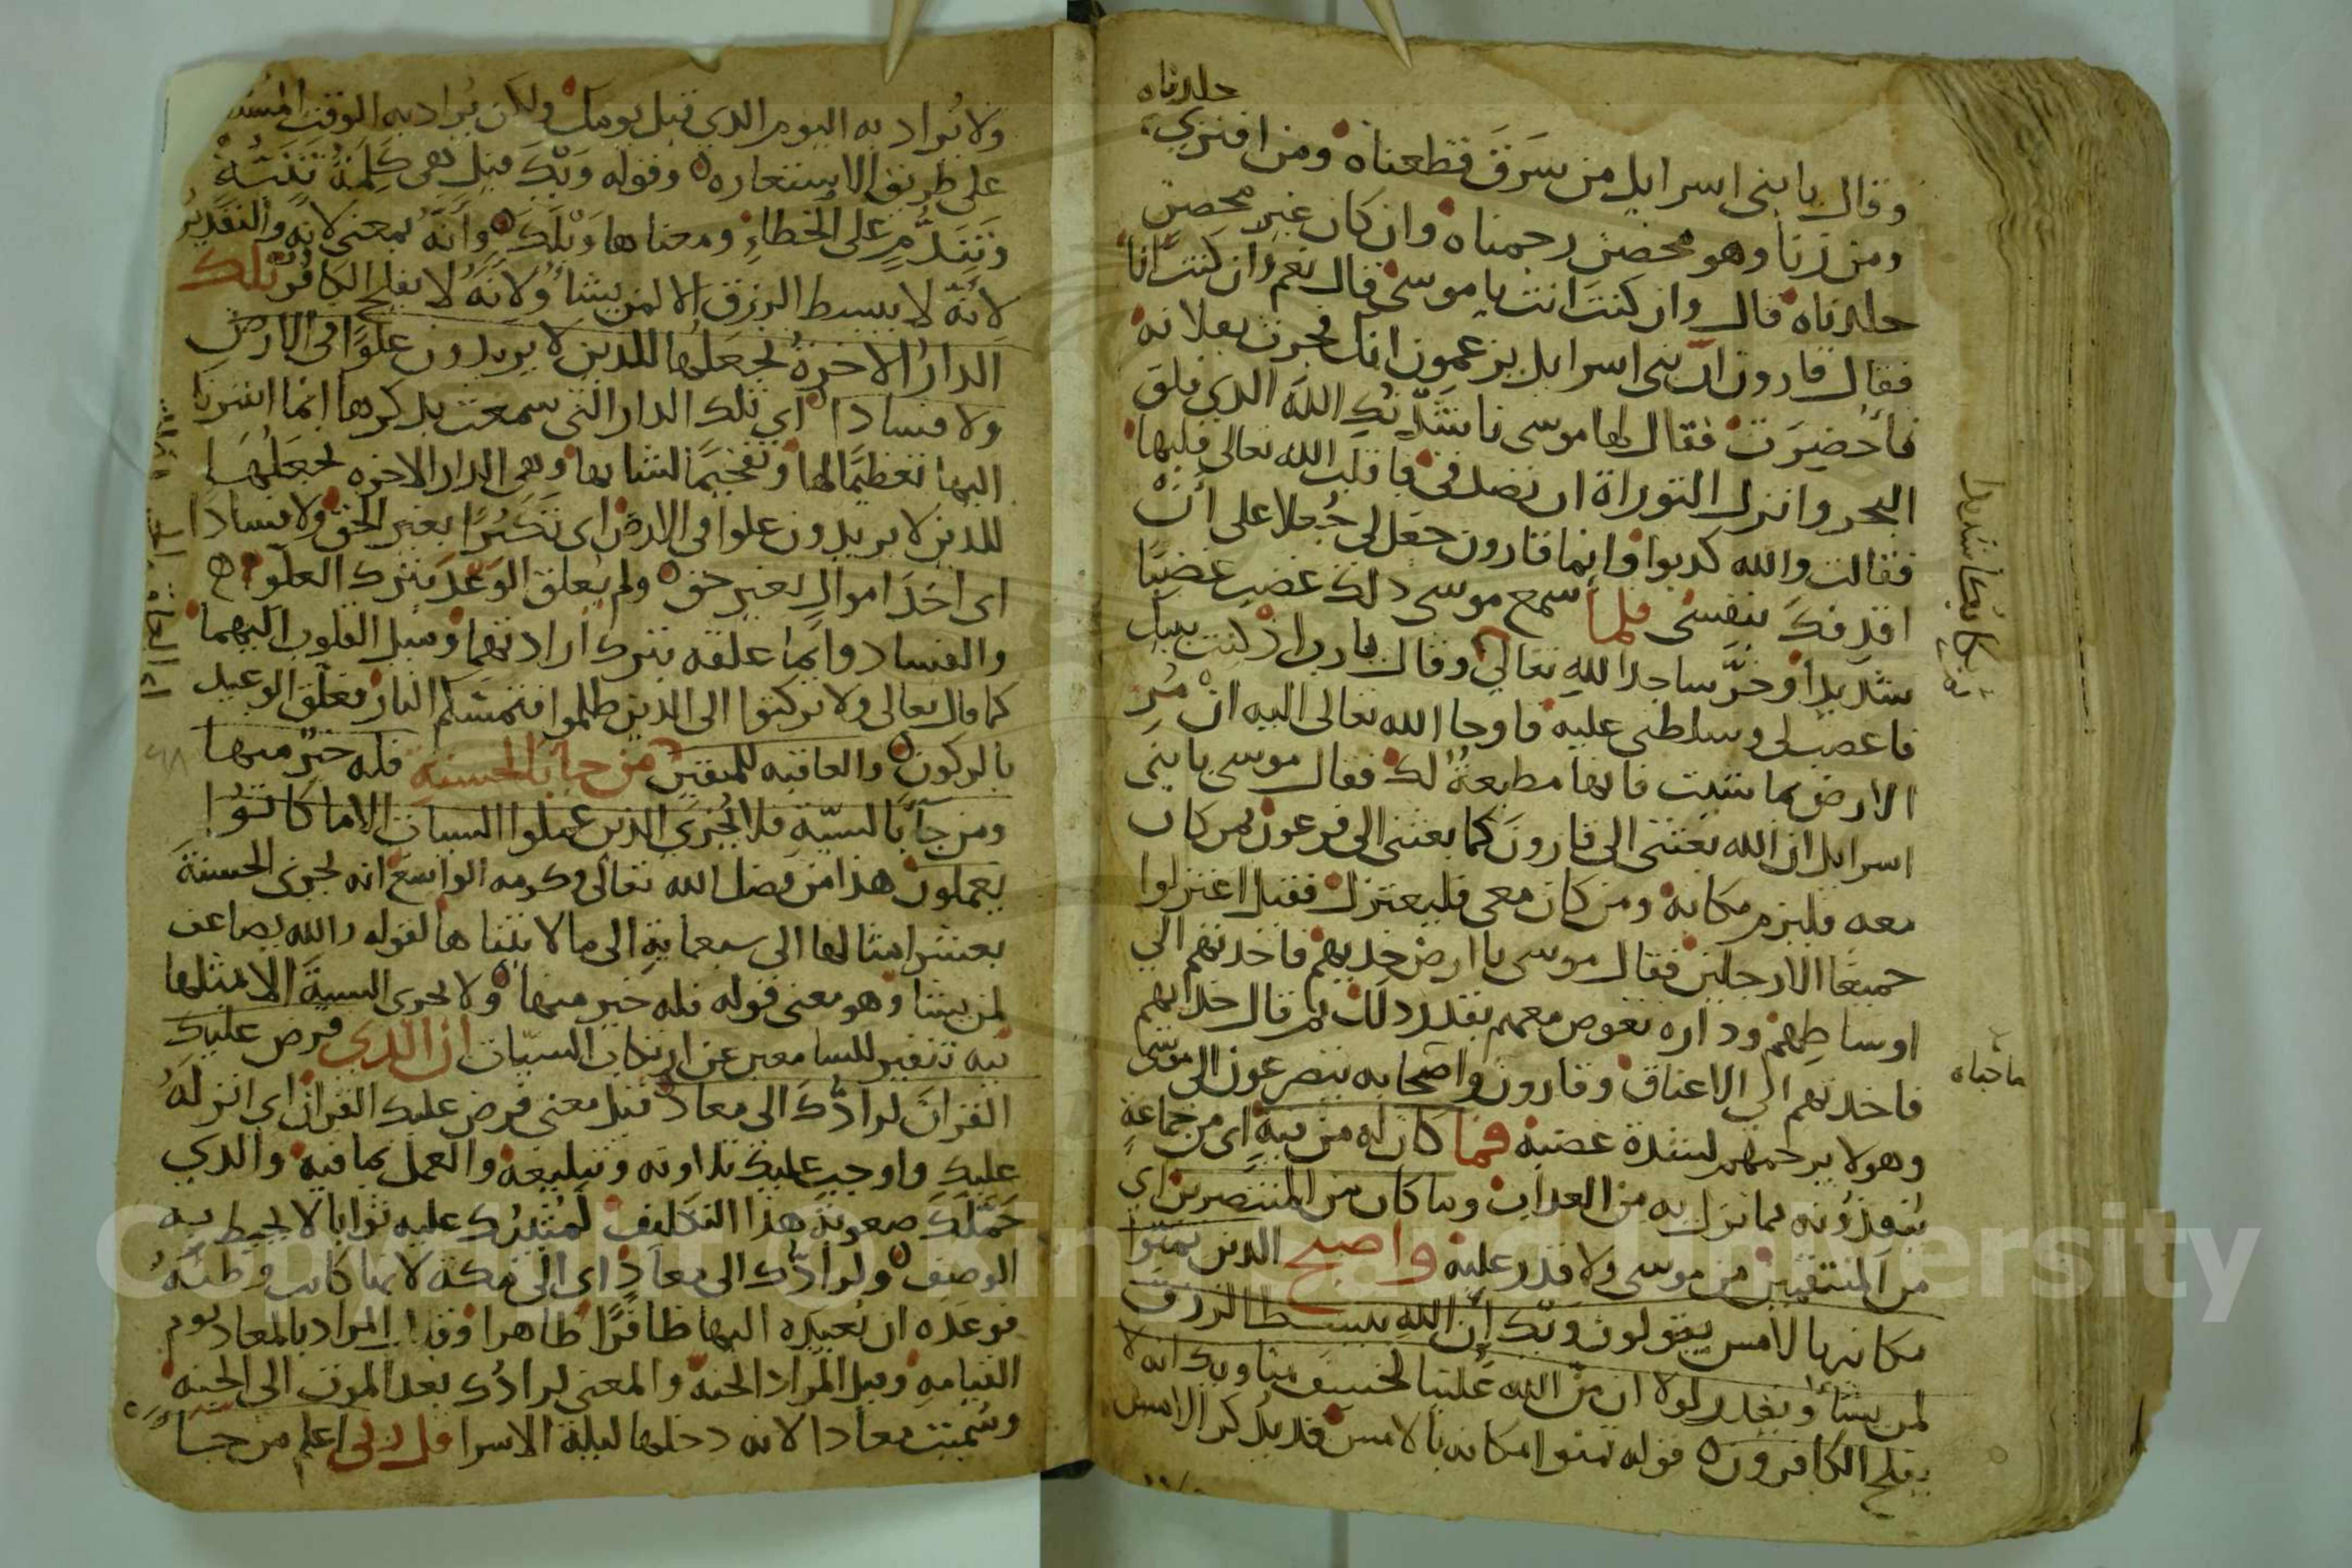 جلدناه
وقال يا بنى اسرايل من سَرَقَ قطعناه ومن افترى
ومن زنا وهو محصن رجمناه وان كان غير محصن
جلدناه قال وان كنتَ انت يا موسى قال نعم وان كنت انا
فقال قارون ان بنى اسرايل يزعمون انك فجرت بفلانه
فأُحضِرَت فقال لها موسى ناشدتكِ الله الذي فلق
البحر وانزل التوراة ان تصدقى فاقلب الله تعالى قلبها
فقالت والله كذبوا وانما قارون جعل لى جُعلا على أن
اقذفك بنفسى فلما سمع موسى ذلك غضب غضبًا
شديدا وخرَّ ساجدا لله تعالى وقال يارب ان كنت نبيك
فاغضب لى وسلطنى عليه فاوحا الله تعالى اليه انْ مُرِ
الارض بما شيت فانها مطيعةٌ لك فقال موسى يا بنى
اسرايل ان الله بعثنى الى قارونَ كما بعثنى الى فرعون فمن كان
معه فليزم مكانه ومن كان معى فليعتزل فقيل اعتزلوا
جميعًا الا رجلين فقال موسى يا ارض خذيهم فاخذتهم الى
اوساطِهم وداره تغوص معهم بقدر ذلك ثم قال خذيهم
فاخذتهم الى الاعناق وقارون واصحابه يتضرعون الى موسى
وهو لا يرحمهم لشدة غضبه فما كان له من فيةٍ اى من جماعةٍ
مما نزل به من العذاب وما كان من المنتصرين اى
من المنتقمين من موسى ولا قدر عليه واصبح الذين تمنوا
مكانه بالامس يقولون ويك أن الله يبسط الرزق
لمن يشأ ويقدر لولا ان منّ الله علينا لخسف بنا ويك انه لا
يفلح الكافرون قوله تمنوا مكانه بالامس قد يذكر الامس
بكا شديدا
ولا يُراد به اليوم الذي قبل يومك ولكن يُراد به الوقت
على طريق الاستعاره وقوله وَيْكَ قيل هى كلِمةُ تَنَبُّهٍ
وتَنَدُّمٍ على الخطاءِ ومعناها وَيْلَكَ وأَنَّهُ بمعنى لانه والتقديرُ
لأنّه لا يبسط الرزق الا لمن يشأ ولأنّه لا يفلح الكافر تلك
الدارُ الاخرةُ نجعلُها للذين لا يريدون علوًّا فى الارض
ولا فسادا اى تلك الدار التى سمعت بذكرها انما اشرنا
اليها تعظيمًا لها وتفخيمًا لشانها وهى الدار الاخره نجعلها
للذين لا يريدون علوا فى الارض اى تكبرًا بغير الحق ولا فسادا
اى اخذ اموال بغير حق ولم يعلق الوعد بترك العلو
والفساد وانما علقه بترك ارادتهما وميل القلوب اليهما
كما قال تعالى ولا تركنوا الى الذين ظلموا فتمسّكم النار فعلّق الوعيد
بالركون والعاقبه للمتقين من جآ بالحسنة فله خيرٌ منها
ومن جآ بالسيّة فلا يُجزى الذين عملوا السيات الا ما كانوا
يعملون هذا من فضل الله تعالى وكرمه الواسع انه يجزى الحسنة
بعشر امثالها الى سبعمايةٍ الى ما لا يتناها لقوله والله يضاعف
لمن يشا وهو معنى قوله فله خير منها ولا يجزى السية الا مثلها
فيه تنفير للسامعين عن ارتكاب السيّات ان الذي فرض عليك
القرانَ لرادُّكَ الى معاد قيل معنى فرض عليك القران اى انزله
عليك واوجب عليك تلاوته وتبليغه والعمل بما فيه والذي
حمّلك صعوبة هذا التكليف لمُثيبُك عليه ثوابا لا يحيط به
الوصف ولرادّك الى معادٍ اى الى مكة لانها كانت وطنَهُ
فوعَدَه ان يُعيدَه اليها ظافرًا ظاهرا وقيل المراد بالمعاد يوم
القيامه وقيل المراد الجنة والمعنى لرادُّك بعد الموت الى الجنه
وسُمّيت معادا لانه دخلها ليلة الاسرا قل ربى اعلم من جأ